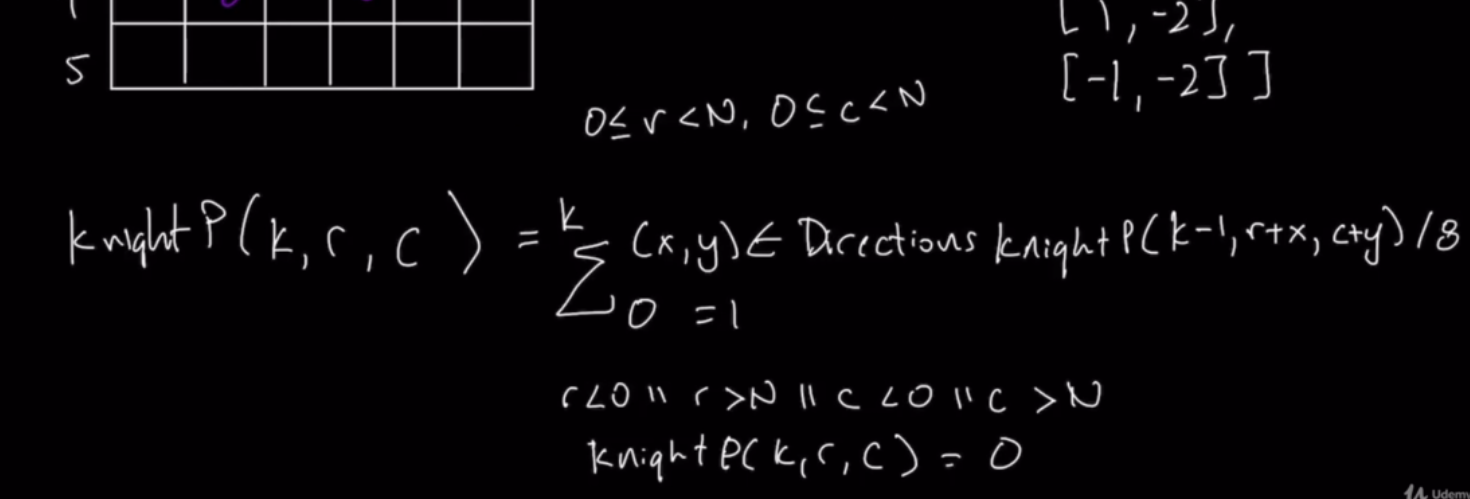 [1, -2],
5
[-1, -2] ]
0 ≤ r < N, 0 ≤ c < N
knightP(k, r, c) = k∑0 (x,y) ∈ Directions knightP(k-1, r+x, c+y) / 8
= 1
r < 0 || r > N || c < 0 || c > N
knightP(k, r, c) = 0